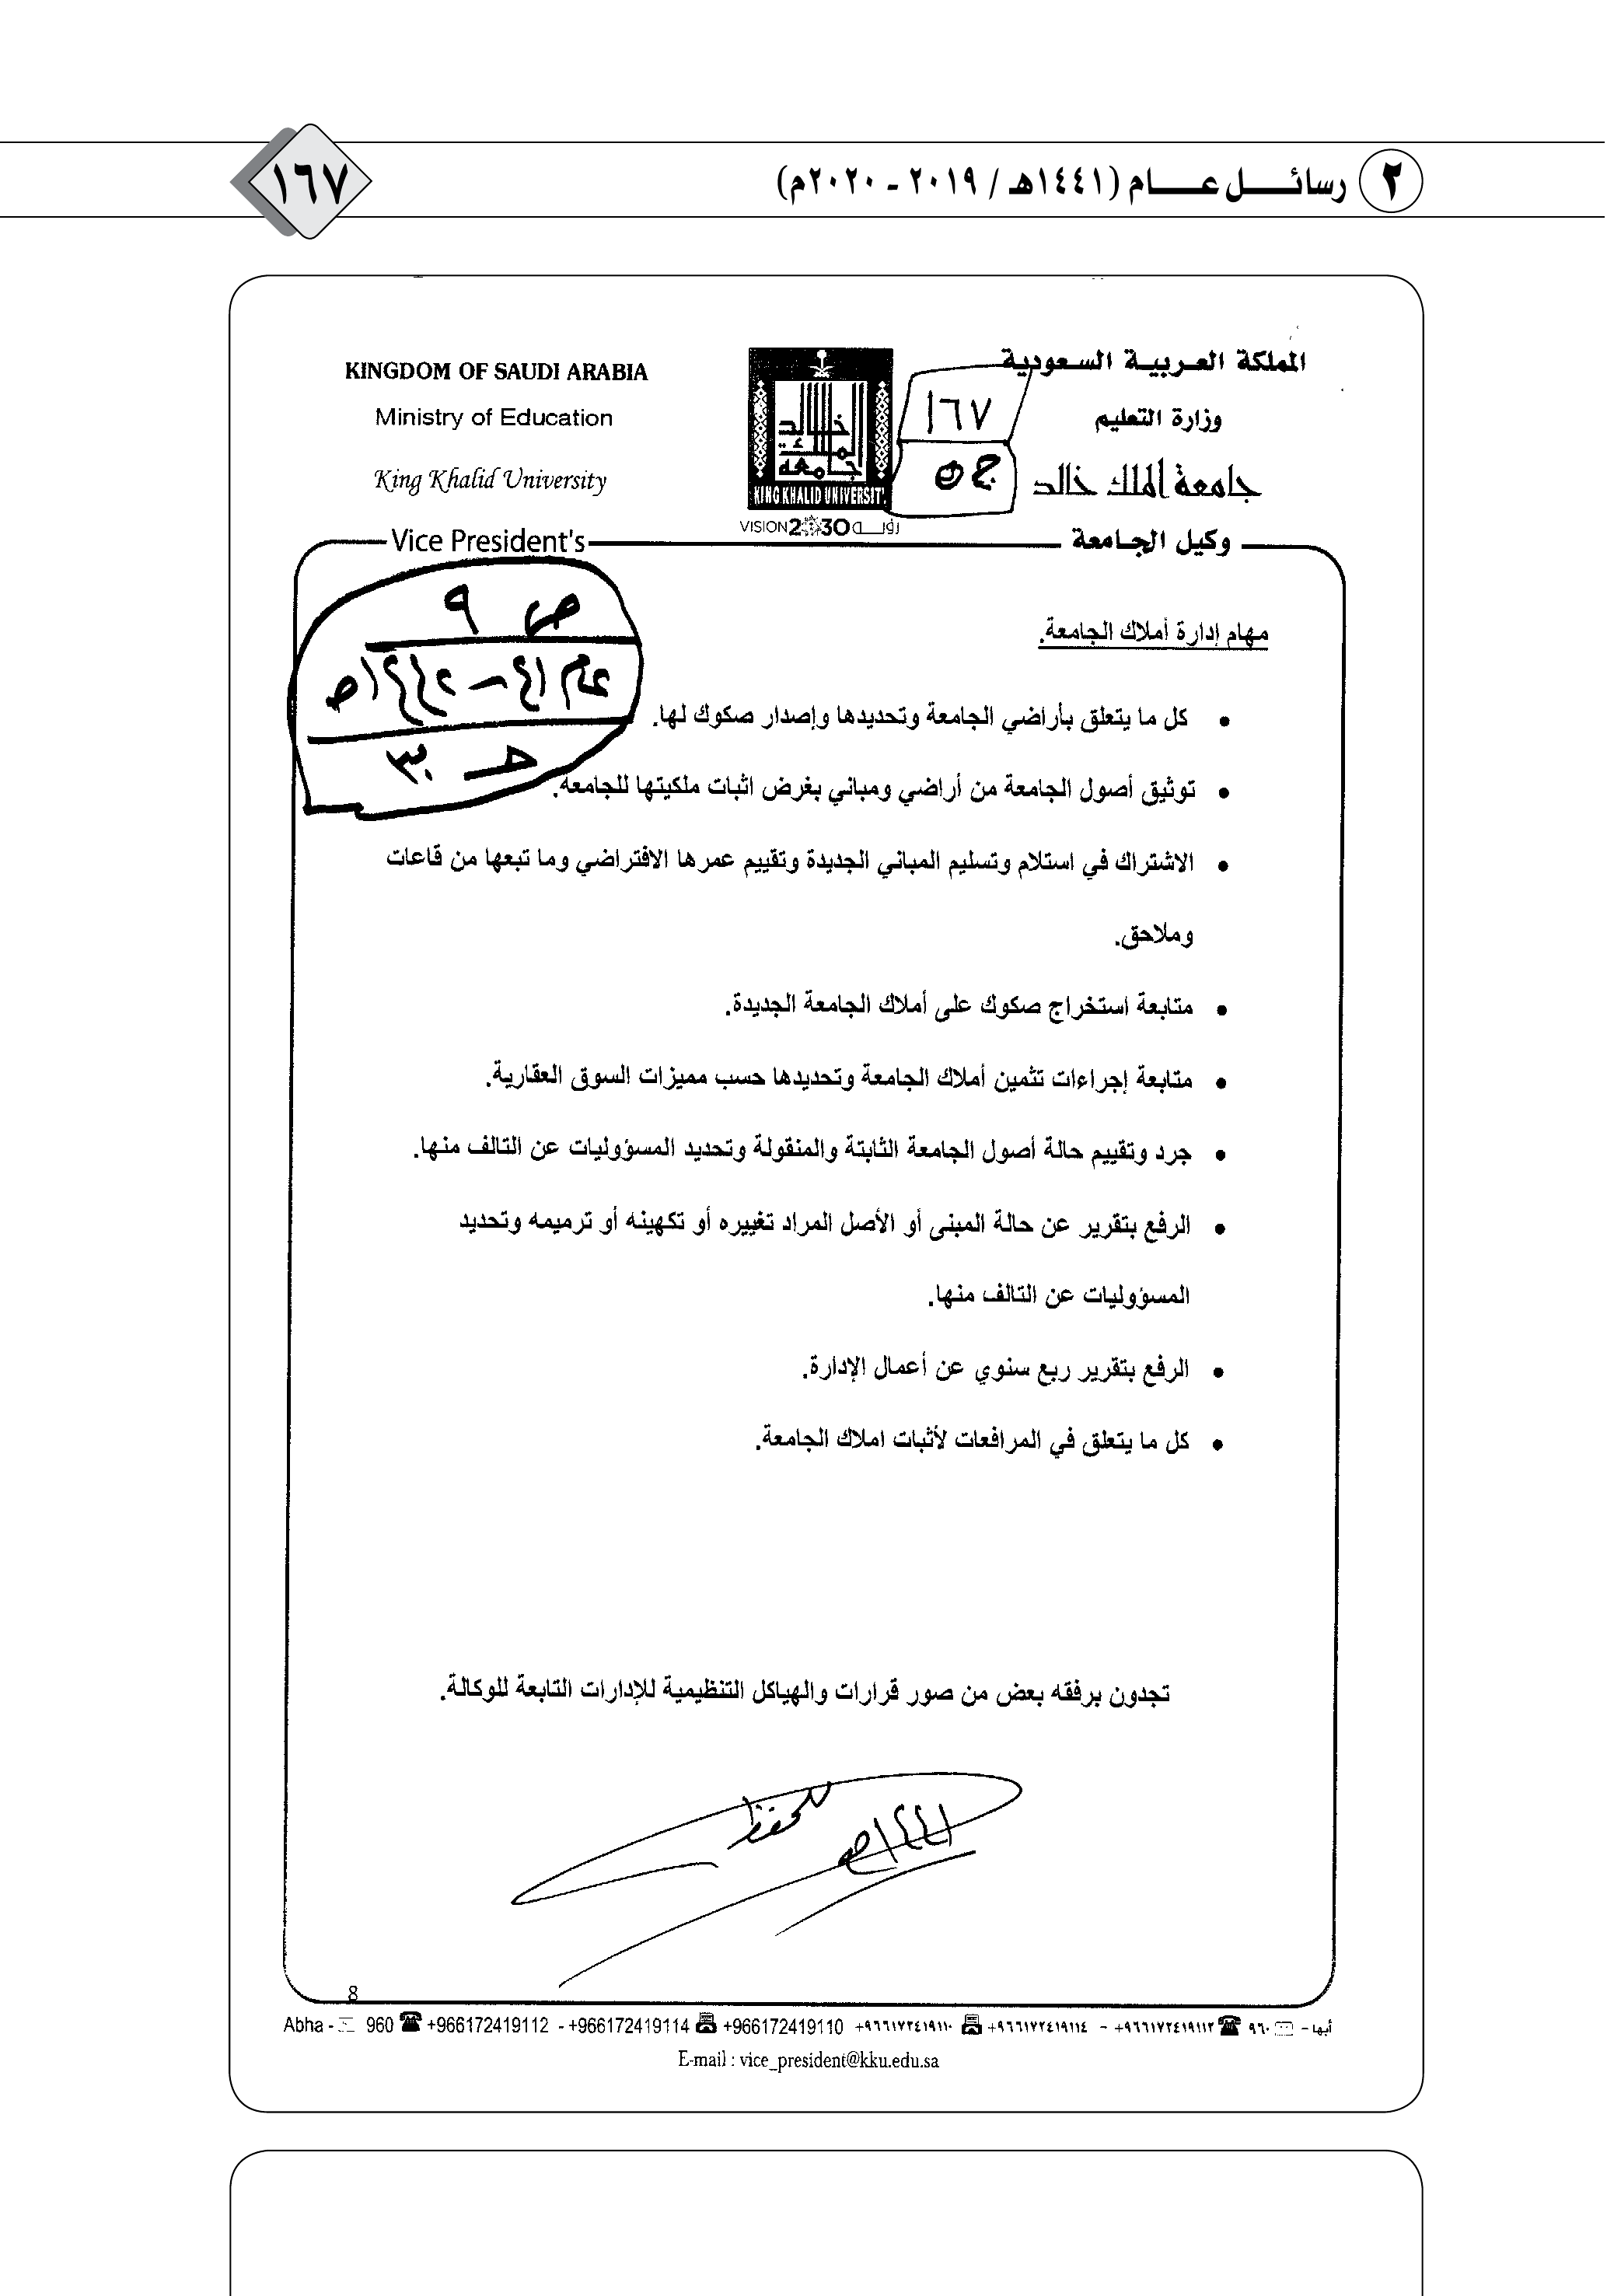 ٢ رسائــــل عــــام (١٤٤١هـ / ٢٠١٩ ـ ٢٠٢٠م)
١٦٧
المملكة العربية السعودية
وزارة التعليم
جامعة الملك خالد
وكيل الجامعة
KINGDOM OF SAUDI ARABIA
Ministry of Education
King Khalid University
Vice President's
جامعة الملك خالد
KING KHALID UNIVERSITY
VISION 2030 رؤيـــة
١٦٧
ص ٩
مهام إدارة أملاك الجامعة.
• كل ما يتعلق بأراضي الجامعة وتحديدها وإصدار صكوك لها.
• توثيق أصول الجامعة من أراضي ومباني بغرض اثبات ملكيتها للجامعة.
• الاشتراك في استلام وتسليم المباني الجديدة وتقييم عمرها الافتراضي وما تبعها من قاعات
وملاحق.
• متابعة استخراج صكوك على أملاك الجامعة الجديدة.
• متابعة إجراءات تثمين أملاك الجامعة وتحديدها حسب مميزات السوق العقارية.
• جرد وتقييم حالة أصول الجامعة الثابتة والمنقولة وتحديد المسؤوليات عن التالف منها.
• الرفع بتقرير عن حالة المبنى أو الأصل المراد تغييره أو تكهينه أو ترميمه وتحديد
المسؤوليات عن التالف منها.
• الرفع بتقرير ربع سنوي عن أعمال الإدارة.
• كل ما يتعلق في المرافعات لأثبات املاك الجامعة.
تجدون برفقه بعض من صور قرارات والهياكل التنظيمية للإدارات التابعة للوكالة.
للحفظ
١٤٤١هـ
8
Abha - 960 +966172419112 - +966172419114 +966172419110 +٩٦٦١٧٢٤١٩١١٠ +٩٦٦١٧٢٤١٩١١٤ – +٩٦٦١٧٢٤١٩١١٢ ٩٦٠ أبها –
E-mail : vice_president@kku.edu.sa